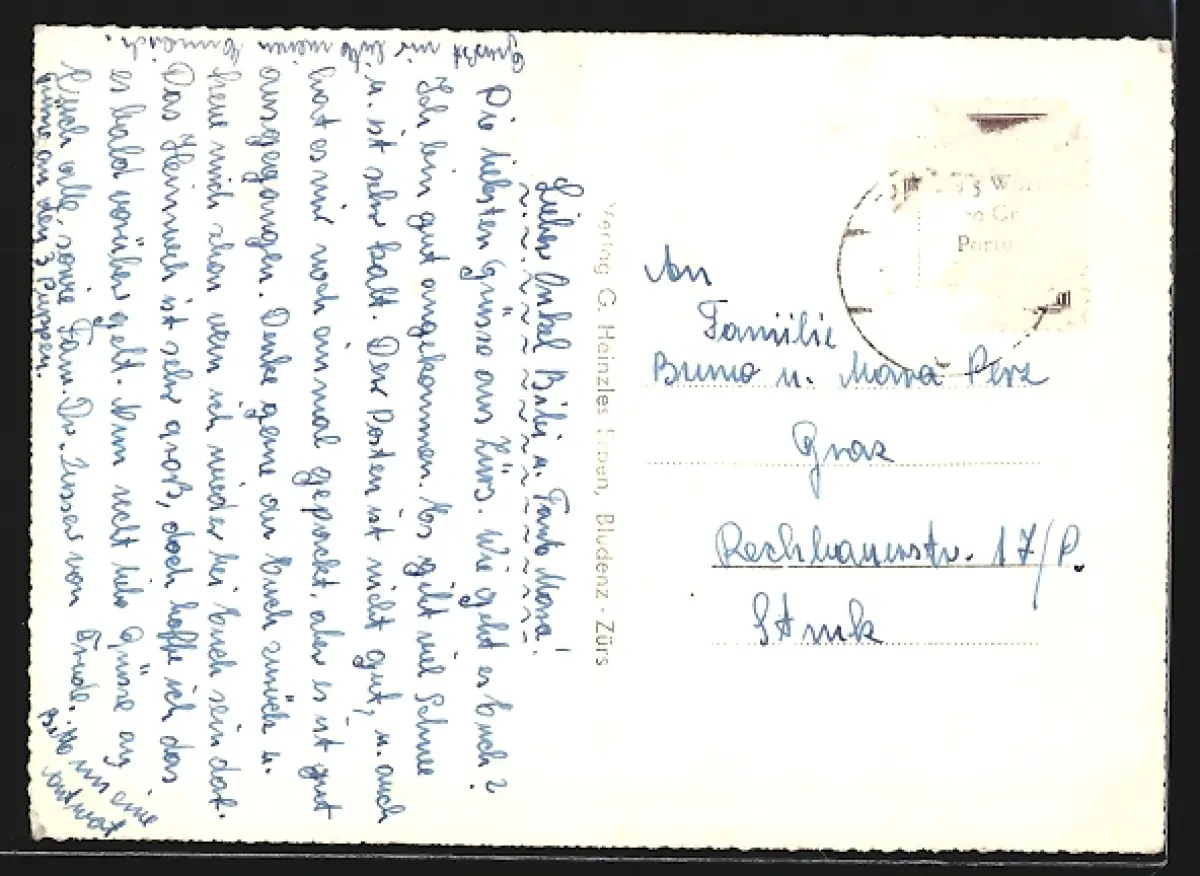 Lieber Onkel Bibi u. Tante Mara!
Die liebsten Grüsse aus Zürs. Wie geht es Euch?
Ich bin gut angekommen. Es gibt viel Schnee
u. ist sehr kalt. Der Posten ist nicht gut, u. auch
hat es mir noch einmal gepackt, aber es ist gut
ausgegangen. Denke gerne an Euch zurück u.
freue mich schon wenn ich wieder bei Euch sein darf.
Das Heimweh ist sehr groß, doch hoffe ich das
es bald vorüber geht. Nun recht liebe Grüsse an
Euch alle, sowie Fam. Dr. Lisser von Trude.
Bitte um eine
Antwort
an den 3 Puppen.
Grüsst mir bitte meinen
Verlag G. Heinzles Erben, Bludenz - Zürs
5 Wor
Gr
Porto
An
Familie
Bruno u. Mara Perz
Graz
Rechbauerstr. 17/P.
Stmk